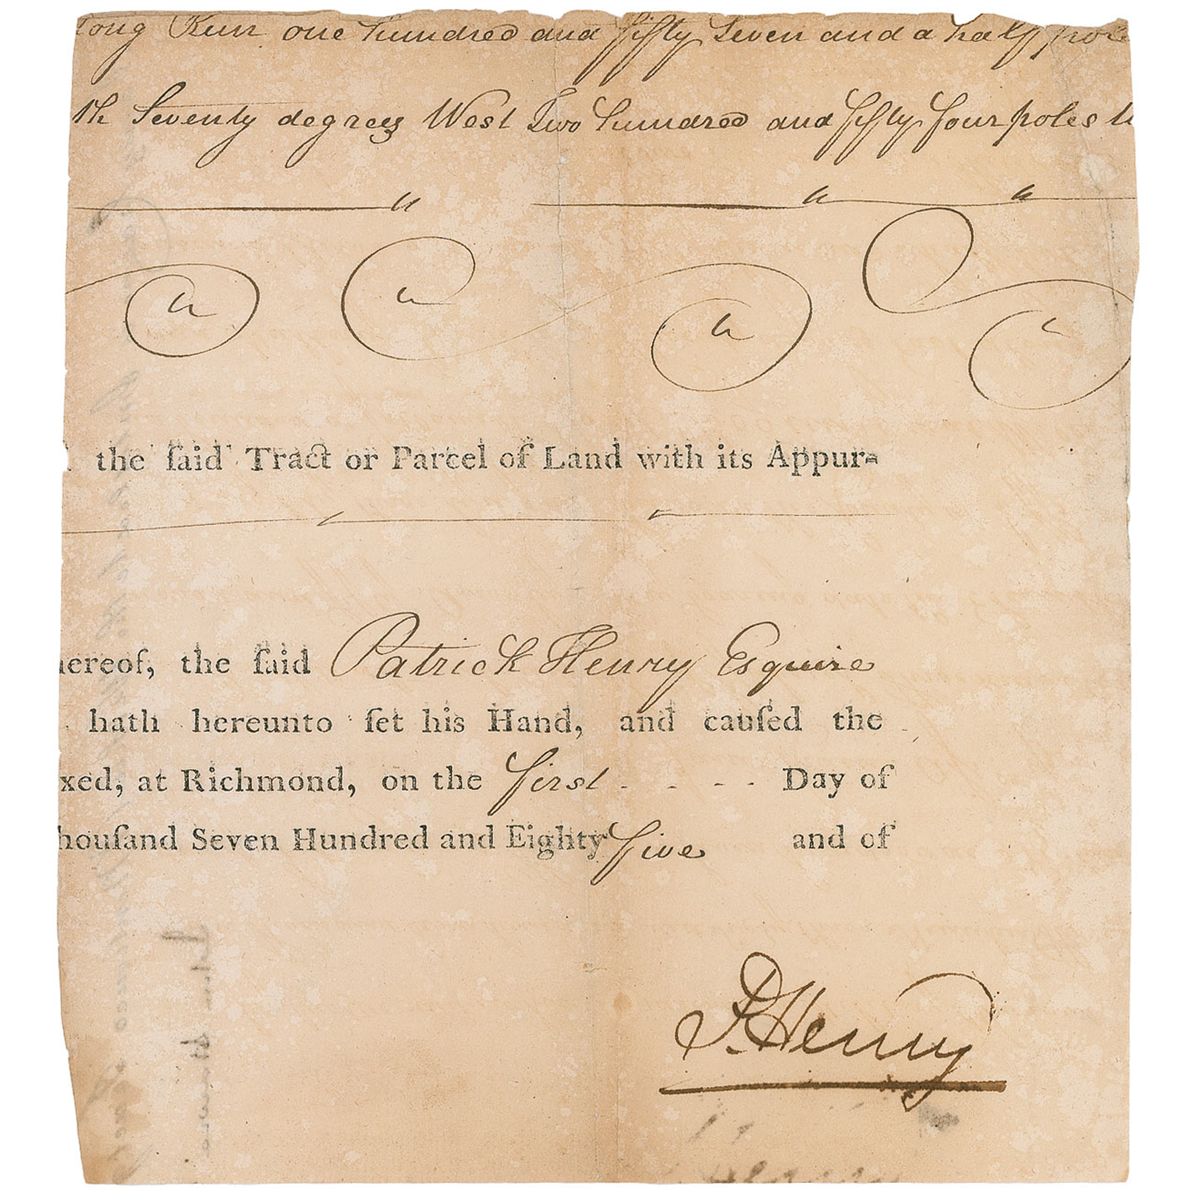 long Run one hundred and fifty Seven and a half pole
th Seventy degrees West Two hundred and fifty four poles t
the ſaid Tract or Parcel of Land with its Appur=
hereof, the ſaid Patrick Henry Esquire
hath hereunto ſet his Hand, and cauſed the
xed, at Richmond, on the first - - - - Day of
houſand Seven Hundred and Eighty five and of
P. Henry